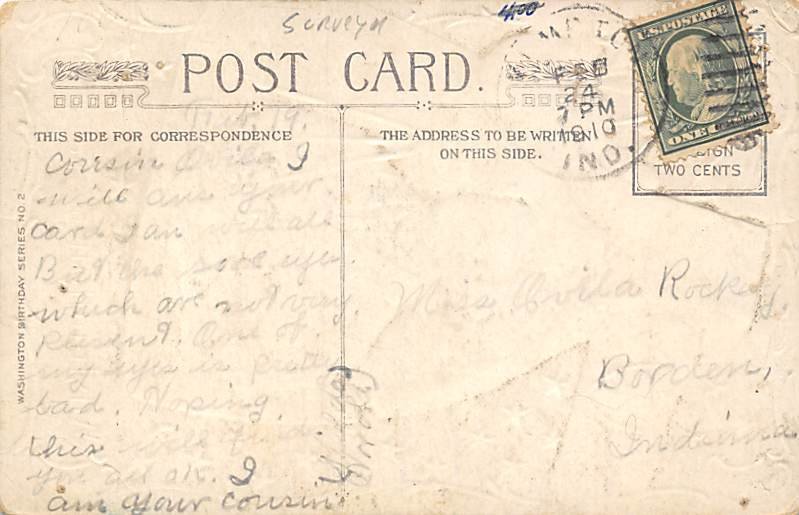 Surveyn
4.00
POST CARD.
FEB
24
7 PM
1910
IND.
U.S. POSTAGE
ONE
TWO CENTS
THIS SIDE FOR CORRESPONDENCE
THE ADDRESS TO BE WRITTEN
ON THIS SIDE.
WASHINGTON BIRTHDAY SERIES NO. 2
Cousin Ovila I
will ans your
card I an well all
But the sore eyes
which are not very
plesent. One of
my eyes is pretty
bad. Hoping
this will find
you all ok. I
am your cousin
Miss Ovila Rockey.
Borden,
Indiana